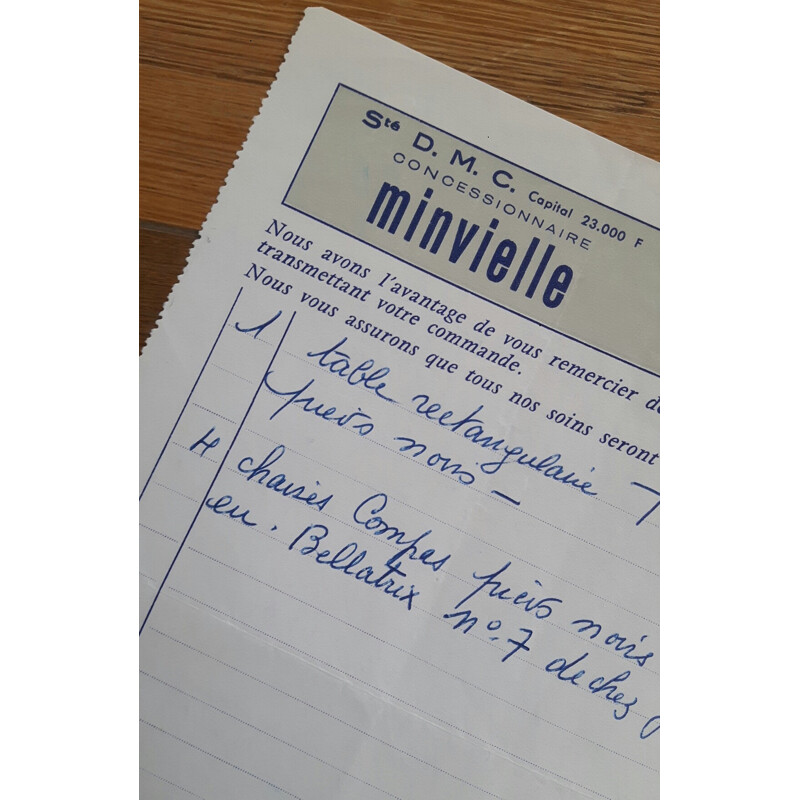 Sté D. M. C. Capital 23.000 F
CONCESSIONNAIRE
minvielle
Nous avons l'avantage de vous remercier de
transmettant votre commande.
Nous vous assurons que tous nos soins seront
1 table rectangulaire
pieds noirs -
4 chaises Compas pieds noirs
en . Bellatrix No. 7 de chez